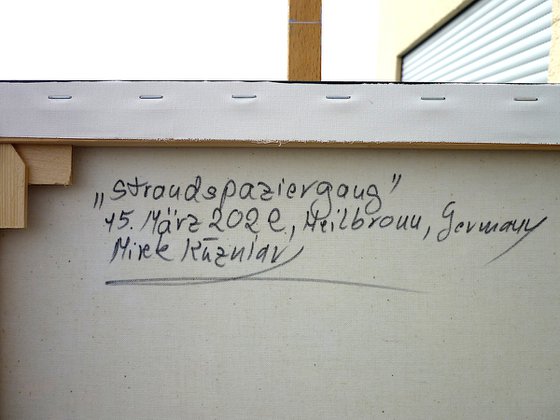 „Strandspaziergang"
15. März 2022, Heilbronn, Germany
Mirek Kuzniar